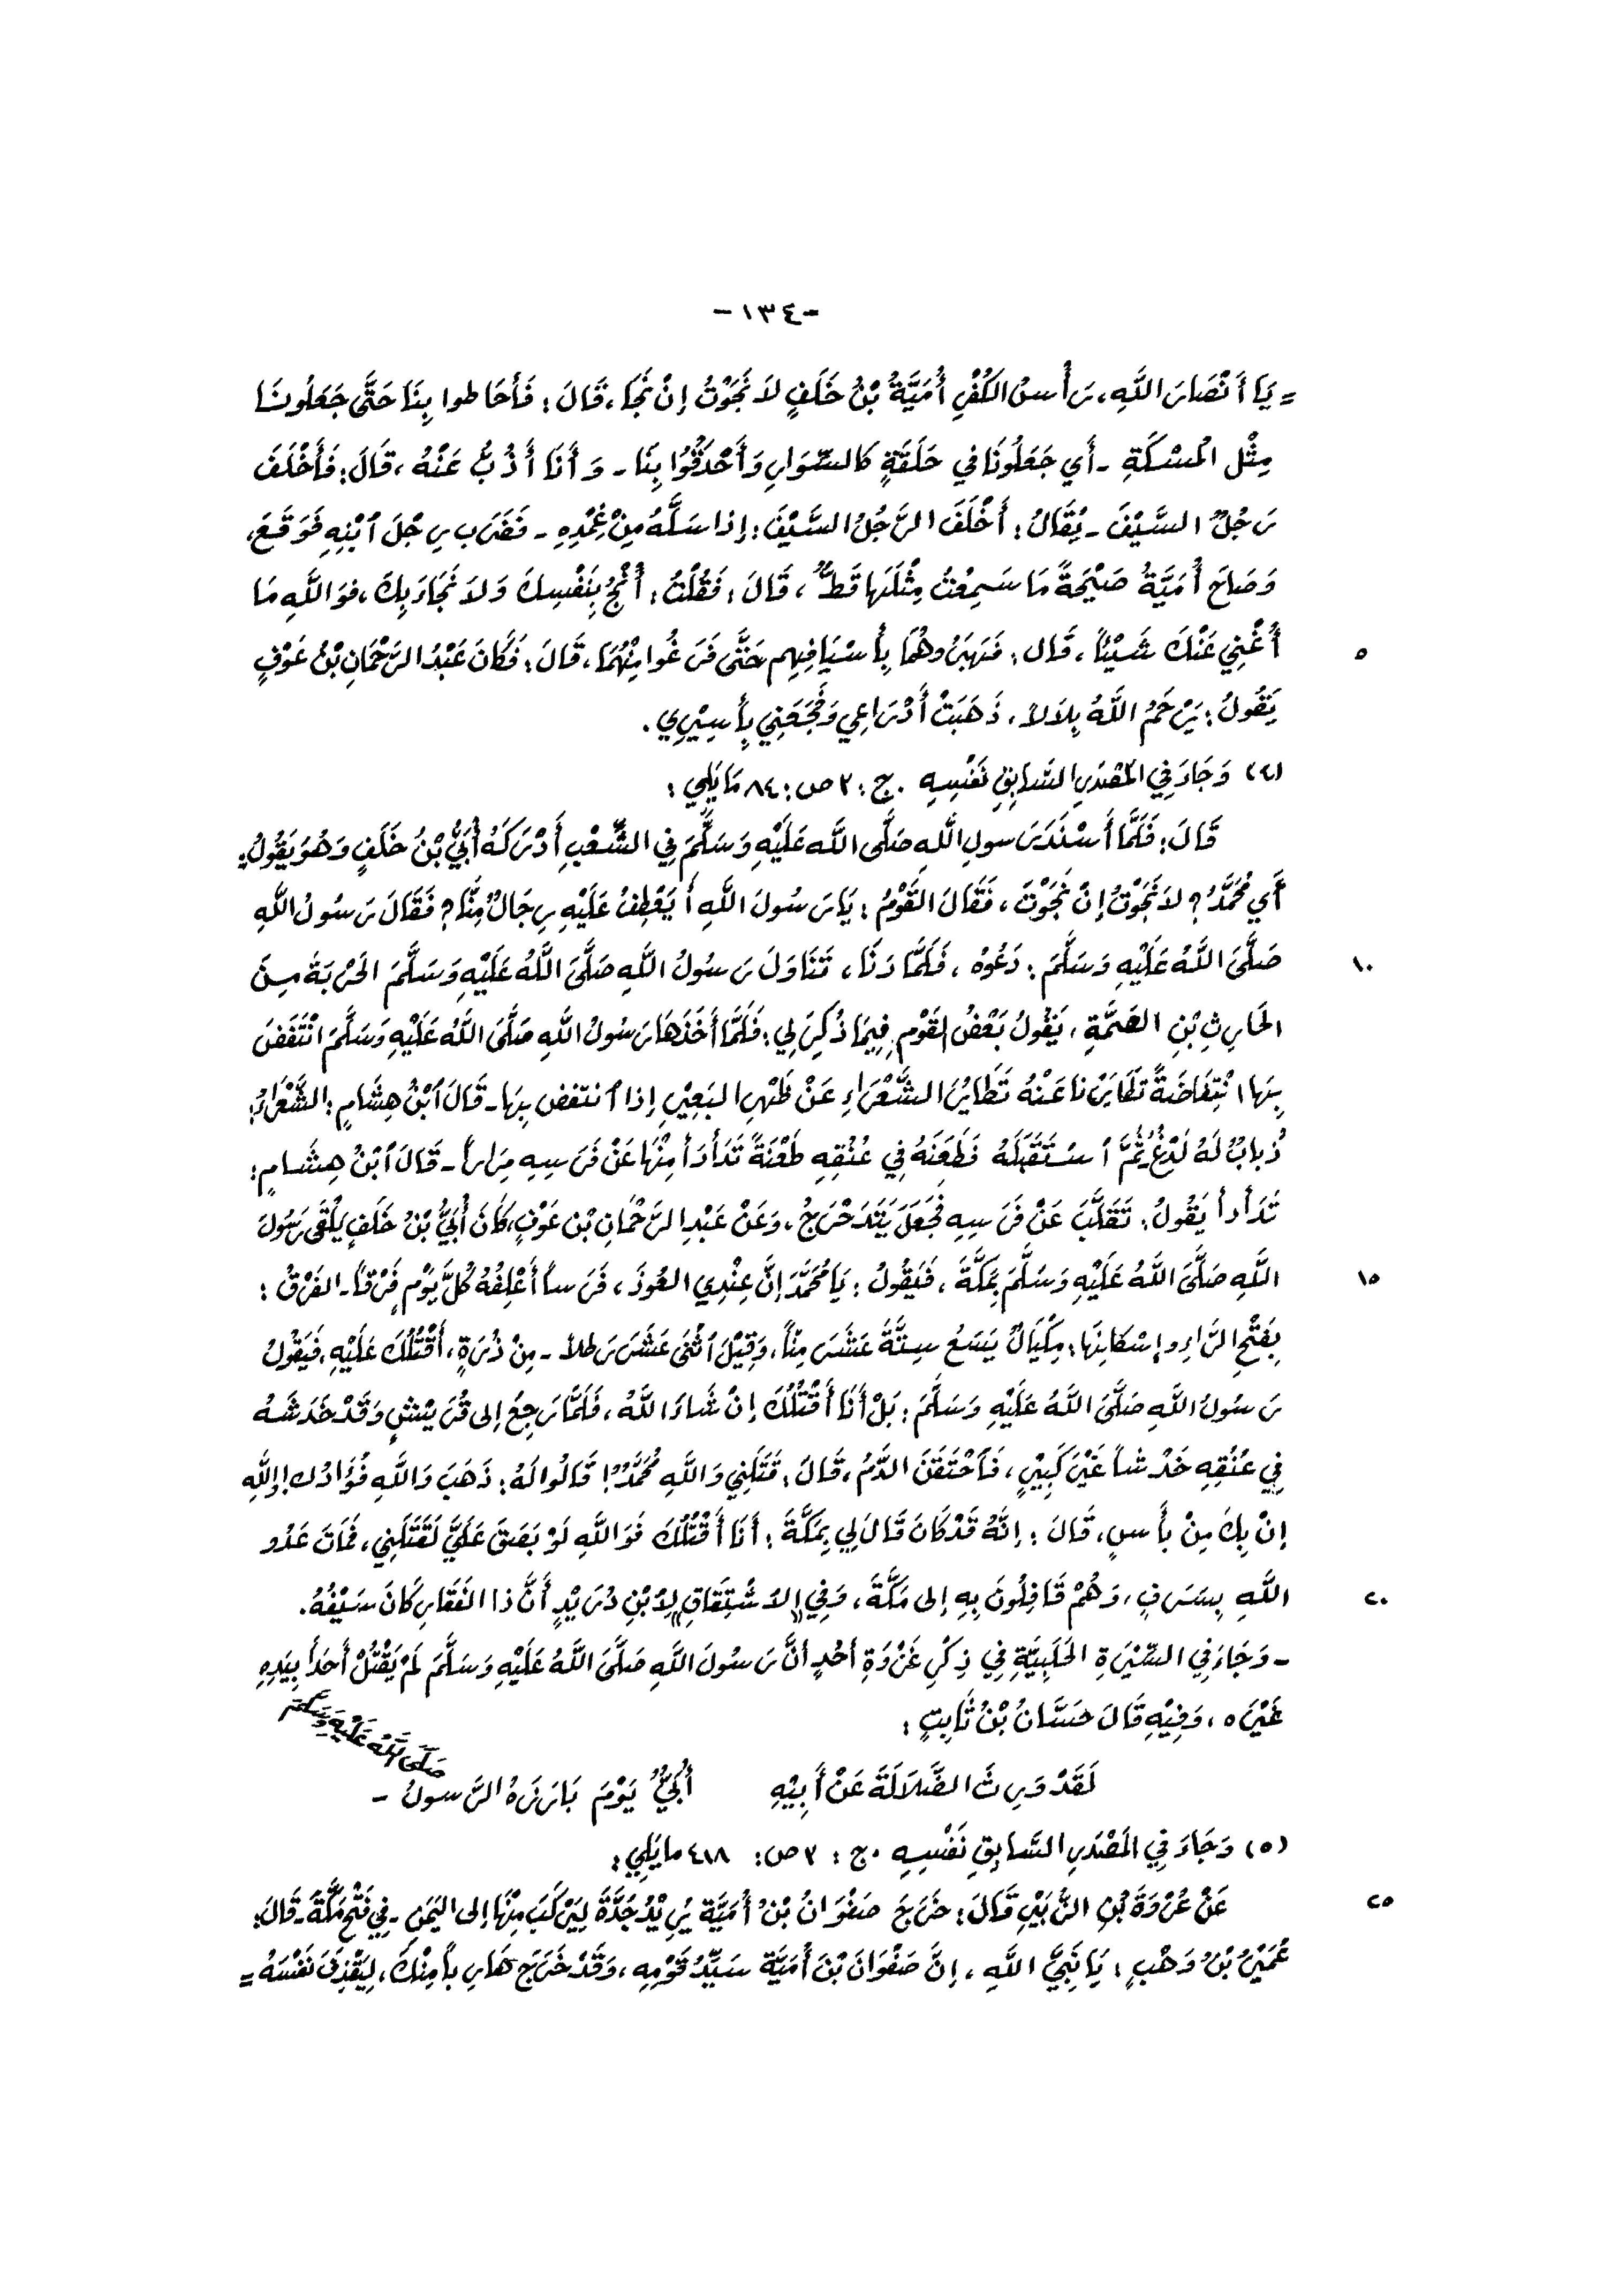 -١٣٤-
= يَا أَنْصَارَ اللَّهِ، رَأْسُ الكُفْرِ أُمَيَّةُ بْنُ خَلَفٍ لاَ نَجَوْتُ إِنْ نَجَا، قَالَ: فَأَحَاطوا بِنَا حَتَّى جَعَلُونَا
مِثْلِ المَسْكَةِ - أَي جَعَلُونَا فِي حَلَقَةٍ كَالسِّوَارِ وَأَحْدَقُوا بِنَا - وَأَنَا أَذُبُّ عَنْهُ، قَالَ: فَأَخْلَفَ
رَجُلٌ السَّيْفَ - يُقَالُ: أَخْلَفَ الرَّجُلُ السَّيْفَ: إِذَا سَلَّهُ مِنْ غِمْدِهِ - فَضَرَبَ رِجْلَ ٱبْنِهِ فَوَقَعَ،
وَصَاحَ أُمَيَّةُ صَيْحَةً مَا سَمِعْتُ مِثْلَهَا قَطُّ، قَالَ: فَقُلْتُ: ٱنْجُ بِنَفْسِكَ وَلاَ نَجَاءَ بِكَ، فَوَاللَّهِ مَا
٥ أُغْنِي عَنْكَ شَيْئاً، قَالَ: فَهَبَرُوهُمَا بِأَسْيَافِهِم حَتَّى فَرَغُوا مِنْهُمَا، قَالَ: فَكَانَ عَبْدُ الرَّحْمَانِ بْنُ عَوْفٍ
يَقُولُ: يَرْحَمُ اللَّهُ بِلاَلاً، ذَهَبَتْ أَدْرَاعِي وَفَجَعَنِي بِأَسِيْرِي.
(٤) وَجَاءَ فِي المَصْدَرِ السَّابِقِ نَفْسِهِ. ج: ٢ ص: ٨٤ مَا يَلِي:
قَالَ: فَلَمَّا أَسْنَدَ رَسولِ اللَّهِ صَلَّى اللَّه عَلَيْهِ وَسَلَّمَ فِي الشِّعْبِ أَدْرَكَهُ أُبَيُّ بْنُ خَلَفٍ وَهُوَ يَقُولُ:
أَي مُحَمَّدُ؟ لاَ نَجَوْتُ إِنْ نَجَوْتَ، فَقَالَ القَوْمُ: يَا رَسُولَ اللَّهِ أَيَعْطِفُ عَلَيْهِ رِجَالٌ مِنَّا؟ فَقَالَ رَسُولُ اللَّهِ
١٠ صَلَّىَ اللَّهُ عَلَيْهِ وَسَلَّمَ: دَعُوهُ، فَلَمَّا دَنَا، تَنَاوَلَ رَسُولُ اللَّهِ صَلَّىَ اللَّهُ عَلَيْهِ وَسَلَّمَ الحَرْبَةَ مِنَ
الحَارِثِ بْنِ الصِّمَّةِ، يَقُولُ بَعْضُ القَوْمِ فِيمَا ذُكِرَ لِي: فَلَمَّا أَخَذَهَا رَسُولُ اللَّهِ صَلَّىَ اللَّهُ عَلَيْهِ وَسَلَّمَ انْتَفَضَ
بِهَا انْتِفَاضَةً تَطَايَرْنَا عَنْهُ تَطَايُرَ الشَّعْرَاءِ عَنْ ظَهْرِ البَعِيْرِ إِذَا ٱنتفض بِهَا - قَالَ ٱبْنُ هِشَامٍ: الشَّعْرَاءُ:
ذُبابٌ لَهُ لَدْغٌ، ثُمَّ ٱسْتَقْبَلَهُ فَطَعَنَهُ فِي عُنُقِهِ طَعْنَةً تَدَأْدَأَ مِنْهَا عَنْ فَرَسِهِ مِرَاراً - قَالَ ٱبْنُ هِشَامٍ:
تَدَأْدأَ يَقُولُ: تَقَلَّبَ عَنْ فَرَسِهِ فَجَعَلَ يَتَدَحْرَجُ، وَعَنْ عَبْدِ الرَّحْمَانِ بْنِ عَوْفٍ، كَانَ أُبَيُّ بْنُ خَلَفٍ يَلْقَى رَسُولَ
١٥ اللَّهِ صَلَّىَ اللَّهُ عَلَيْهِ وَسَلَّمَ بِمَكَّةَ، فَيَقُولُ: يَا مُحَمَّدَ إِنَّ عِنْدِي العَوْذَ، فَرَساً أَعْلِفُهُ كُلَّ يَوْمٍ فَرْقاً - الفَرْقُ:
بِفَتْحِ الرَّاءِ وإِسْكَانِهَا: مِكْيَالٌ يَسَعُ سِتَّةَ عَشَرَ مِنّاً، وَقِيْلَ ٱثْنَى عَشَرَ رَطلاً - مِنْ ذُرَةٍ، أَقْتُلُكَ عَلَيْهِ، فَيَقُولُ
رَسُولُ اللَّهِ صَلَّىَ اللَّهُ عَلَيْهِ وَسَلَّمَ: بَلْ أَنَا أَقْتُلُكَ إِنْ شَاءَ اللَّهُ، فَلَمَّا رَجِعَ إلى قُرَيْشٍ وَقَدْ خَدَشَهُ
فِي عُنُقِهِ خَدْشاً غَيْرَ كَبِيْرٍ، فَٱحْتَقَنَ الدَّمُ، قَالَ: قَتَلَنِي وَاللَّهِ مُحَمَّدٌ! قَالُوا لَهُ: ذَهَبَ وَاللَّهِ فُؤَادُك! وَاللَّهِ
إِنْ بِكَ مِنْ بَأْسٍ، قَالَ: إِنَّهُ قَدْ كَانَ قَالَ لِي بِمَكَّةَ: أَنَا أَقْتُلُكَ فَوَاللَّهِ لَوْ بَصَقَ عَلَيَّ لَقَتَلَنِي، فَمَاتَ عَدُو
٢٠ اللَّهِ بِسَرَفٍ، وَهُمْ قَافِلُونَ بِهِ إلى مَكَّةَ، وَفِي «الاشْتِقَاقِ» لابْنِ دُرَيْدٍ أَنَّ ذا الفَقَارِ كَانَ سَيْفُهُ.
- وَجَاءَ فِي السِّيْرَةِ الحَلَبِيَّةِ فِي ذِكْرِ غَزْوَةِ أُحُدٍ أنَّ رَسُولَ اللَّهِ صَلَّىَ اللَّهُ عَلَيْهِ وَسَلَّمَ لَمْ يَقْتُلْ أَحَداً بِيَدِهِ
غَيْرَه، وَفِيْهِ قَالَ حَسَّانُ بْنُ ثَابِتٍ:
لَقَدْ وَرِثَ الضَّلاَلَةَ عَنْ أَبِيْهِ أُبَيٌّ يَوْمَ بَارَزَهُ الرَّسولُ - صَلَّىَ اللَّهُ عَلَيْهِ وَسَلَّمَ
(٥) وَجَاءَ فِي المَصْدَرِ السَّابِقِ نَفْسِهِ. ج: ٣ ص: ٤١٨ مايَلِي:
٢٥ عَنْ عُرْوَةَ بْنِ الزُّبَيْرِ قَالَ: خَرَجَ صَفْوَانُ بْنُ أُمَيَّةَ يُرِيْدُ جُدَّةَ لِيَرْكَبَ مِنْهَا إلى اليَمَنِ - فِي فَتْحِ مَكَّةَ - قَالَ:
عُمَيْرُ بْنُ وَهْبٍ: يَا نَبِيَّ اللَّهِ، إِنَّ صَفْوَانَ بْنَ أُمَيَّةَ سَيِّدُ قَوْمِهِ، وَقَدْ خَرَجَ هَارِباً مِنْكَ، لِيَقْذِفَ نَفْسَهُ =